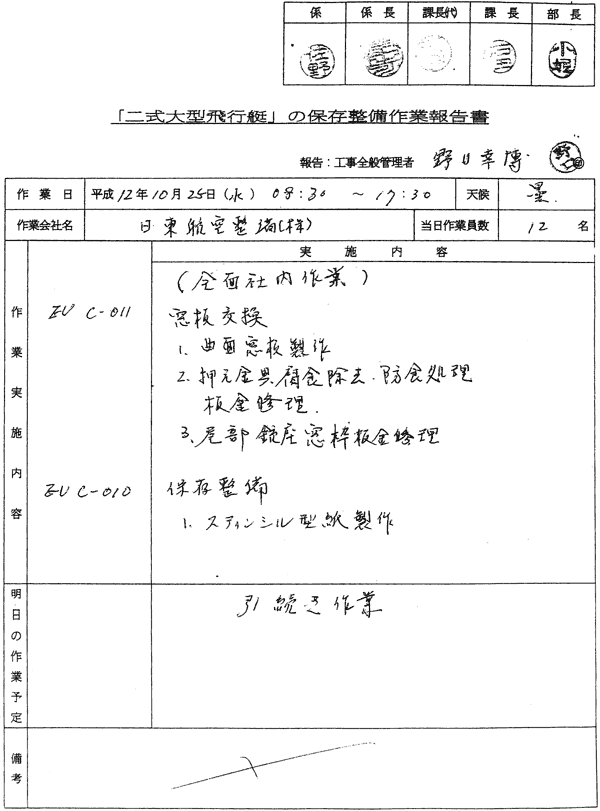 係 係長 課長代 課長 部長
小堀
「二式大型飛行艇」の保存整備作業報告書
報告：工事全般管理者 野口幸博
作業日 平成12年10月25日(水) 08:30 ～ 17:30 天候 曇.
作業会社名 日東航空整備(株) 当日作業員数 12 名
実施内容
作業実施内容
(全面社内作業)
EU C-011 窓板交換
1. 曲面窓板製作
2. 押え金具腐食除去.防食処理
板金修理.
3. 尾部銃座窓枠板金修理
EU C-010 保存整備
1. スティンシル型紙製作
明日の作業予定 引続き作業
備考